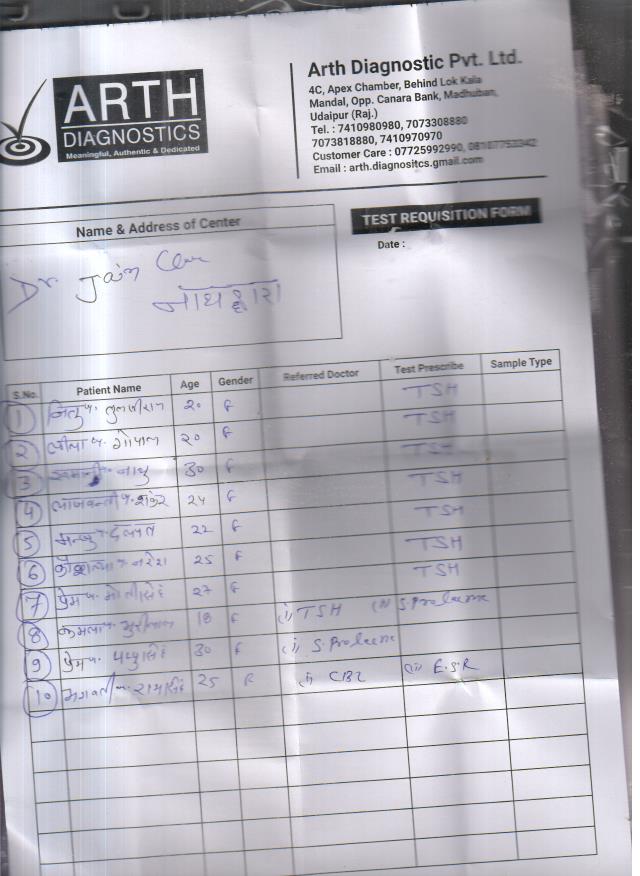 ARTH
DIAGNOSTICS
Meaningful, Authentic & Dedicated
Arth Diagnostic Pvt. Ltd.
4C, Apex Chamber, Behind Lok Kala
Mandal, Opp. Canara Bank, Madhuban,
Udaipur (Raj.)
Tel. : 7410980980, 7073308880
7073818880, 7410970970
Customer Care : 07725992990,
Email : arth.diagnositcs.gmail.com
Name & Address of Center
TEST REQUISITION FORM
Date :
Dr Jain
नाथद्वारा
S.No. Patient Name Age Gender Referred Doctor Test Prescribe Sample Type
1 20 F TSH
2 लीला गोपाल 20 F TSH
3 नाथु 30 F TSH
4 शंकर 24 F TSH
5 22 F TSH
6 कौशल्या नरेश 25 F TSH
7 प्रेम मोतीसिंह 27 F TSH
8 कमला 18 F (i) TSH (ii)
9 प्रेम पप्पुसिंह 30 F (i)
10 रामसिंह 25 F (i) (ii) E.S.R